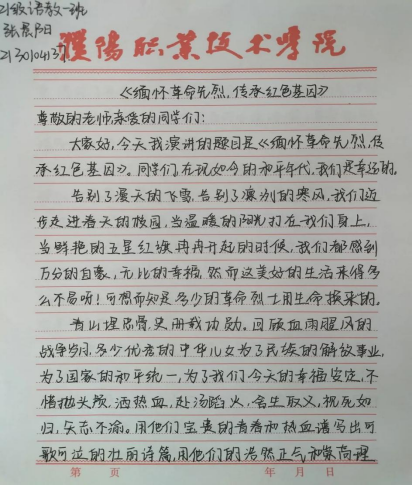 21级语教一班
张晨阳
2130104137
濮阳职业技术学院
《缅怀革命先烈,传承红色基因》
尊敬的老师亲爱的同学们:
大家好,今天我演讲的题目是《缅怀革命先烈,传
承红色基因》。同学们,在现如今的和平年代,我们是幸运的。
告别了漫天的飞雪,告别了凛冽的寒风,我们迈
步走进春天的校园,当温暖的阳光打在我们身上,
当鲜艳的五星红旗冉冉升起的时候,我们都感到
万分的自豪,无比的幸福,然而这美好的生活来得多
么不易呀!可想而知是多少的革命烈士用生命换来的。
青山埋忠骨,史册载功勋。回顾血雨腥风的
战争岁月,多少优秀的中华儿女为了民族的解放事业,
为了国家的和平统一,为了我们今天的幸福安定,不
惜抛头颅,洒热血,赴汤蹈火,舍生取义,视死如
归,矢志不渝。用他们宝贵的青春和热血谱写出可
歌可泣的壮丽诗篇,用他们的浩然正气和崇高理
第 页 年 月 日